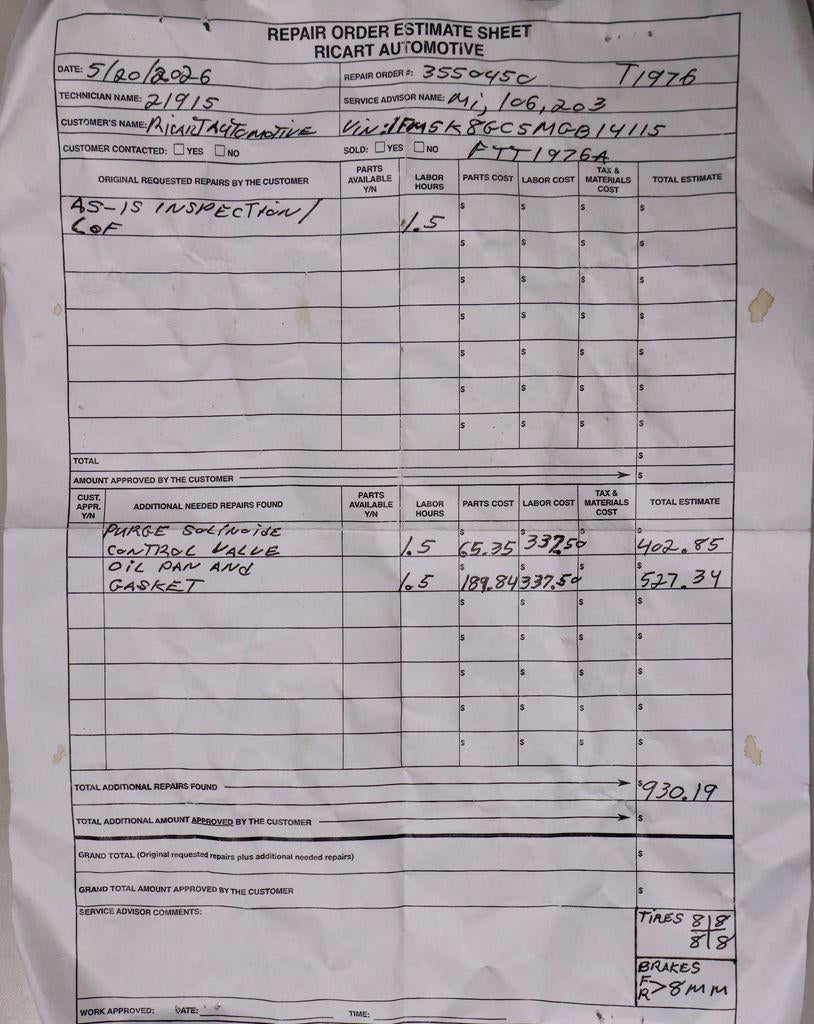 REPAIR ORDER ESTIMATE SHEET
RICART AUTOMOTIVE
DATE: 5/20/2026 REPAIR ORDER #: 3550450 T1976
TECHNICIAN NAME: 21915 SERVICE ADVISOR NAME: Mi, 106,203
CUSTOMER'S NAME: RICART AUTOMOTIVE Vin: 1FM5K8GC5MGB14115
CUSTOMER CONTACTED: ☐ YES ☐ NO SOLD: ☐ YES ☐ NO FTT1976A
ORIGINAL REQUESTED REPAIRS BY THE CUSTOMER PARTS AVAILABLE Y/N LABOR HOURS PARTS COST LABOR COST TAX & MATERIALS COST TOTAL ESTIMATE
AS-IS INSPECTION/ $ $ $ $
LOF 1.5
$ $ $ $
$ $ $ $
$ $ $ $
$ $ $ $
$ $ $ $
$ $ $ $
TOTAL $
AMOUNT APPROVED BY THE CUSTOMER $
CUST. APPR. Y/N ADDITIONAL NEEDED REPAIRS FOUND PARTS AVAILABLE Y/N LABOR HOURS PARTS COST LABOR COST TAX & MATERIALS COST TOTAL ESTIMATE
PURGE SOLINOIDE $ $ $ $
CONTROL VALUE 1.5 65.35 337.50 402.85
OIL PAN AND $ $ $ $
GASKET 1.5 189.84 337.50 527.34
$ $ $ $
$ $ $ $
$ $ $ $
$ $ $ $
$ $ $ $
TOTAL ADDITIONAL REPAIRS FOUND $930.19
TOTAL ADDITIONAL AMOUNT APPROVED BY THE CUSTOMER $
GRAND TOTAL (Original requested repairs plus additional needed repairs) $
GRAND TOTAL AMOUNT APPROVED BY THE CUSTOMER $
SERVICE ADVISOR COMMENTS:
TIRES 8|8
8|8
BRAKES
F
R > 8MM
WORK APPROVED: DATE: TIME: